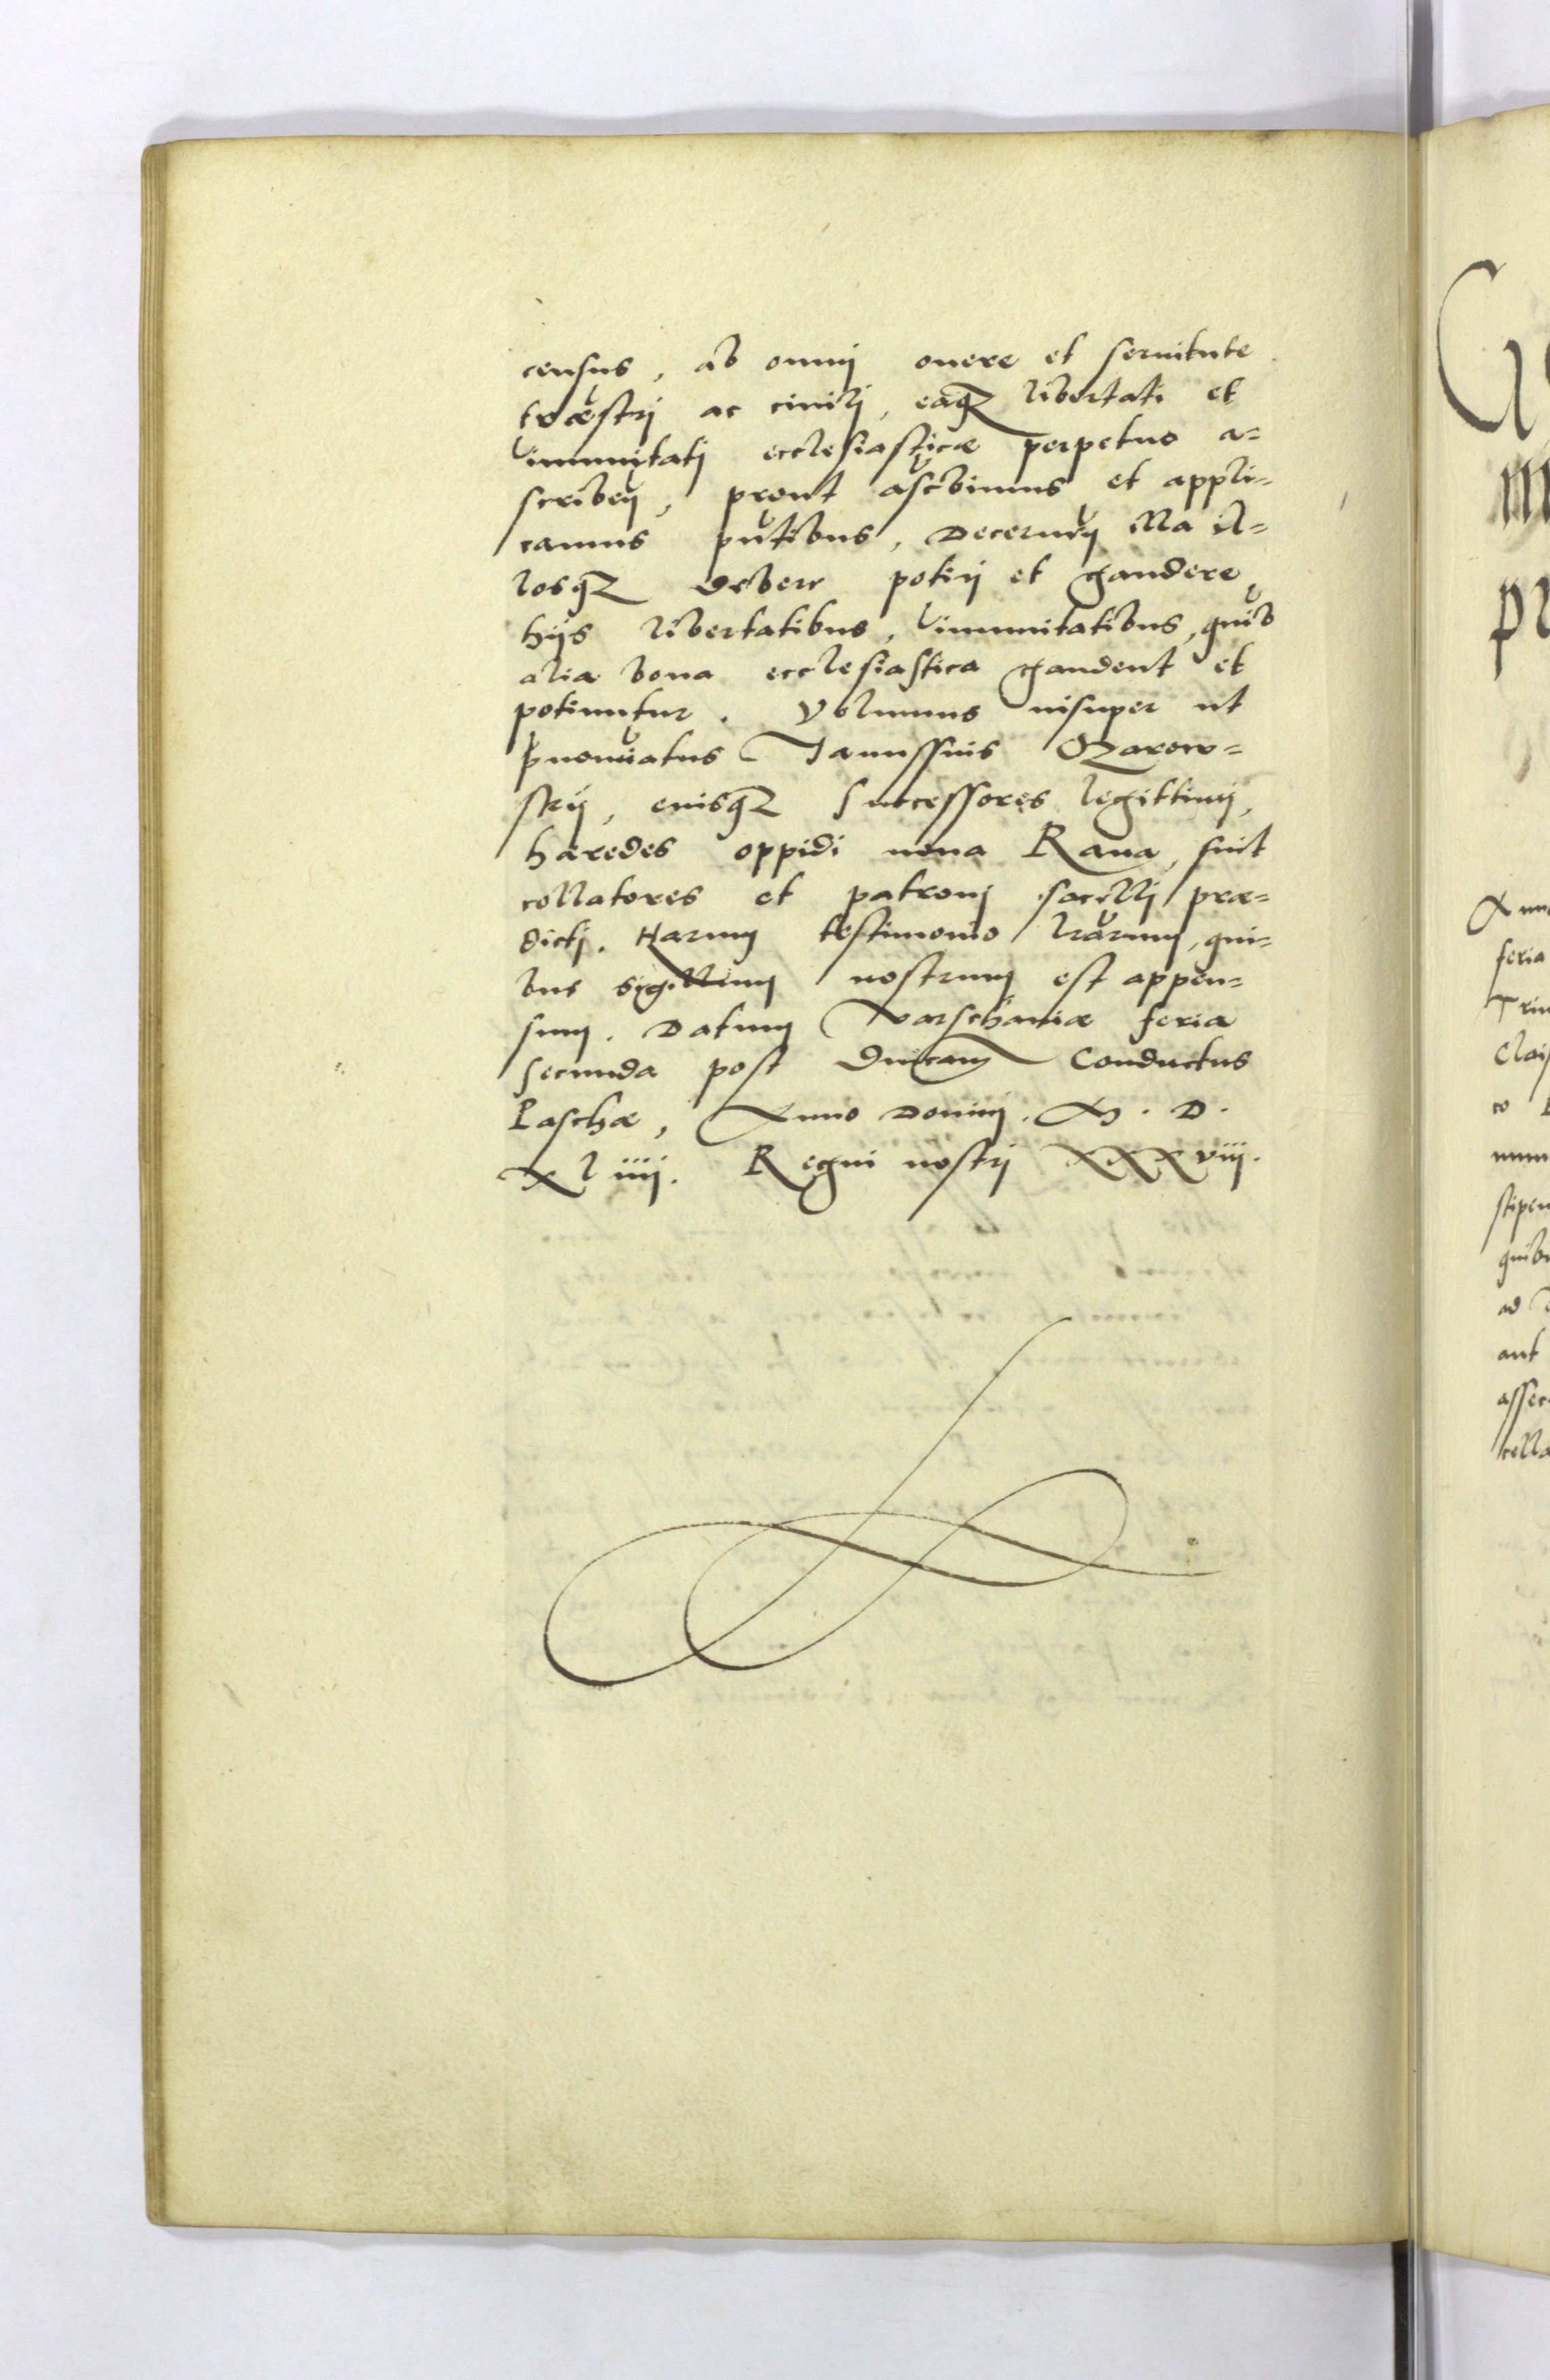 census, ab omni onere et seruitute
träestri ac ciuili, eaqꝫ libertati et
immunitati ecclesiasticæ perpetuo a=
scribeñ, prout ascr̃bimus et appli=
camus p̃ntibus, Decerneñ illa il=
losqꝫ debere potiri et gaudere
hijs libertatibus, immunitatibus, quib̃
alia bona ecclesiastica gaudent et
potiuntur. Volumus insuper ut
p̃nomĩatus Janussius
skij, eiusqꝫ successores legittimi,
hæredes oppidi noua Raua, sint
collatores et patroni sacelli præ=
dicti. Harum testimonio lr̃arum, qui=
bus sigillum nostrum est appen=
sum. Datum Varschauiæ feria
secunda post Dñicam Conductus
Paschæ, Anno Domini. M. D.
XLiiij. Regni nostri XXXviij.
G
m
p
Ann
feria
Trin
Clai
co
num
stipen
quibu
ad
aut
asser
cella